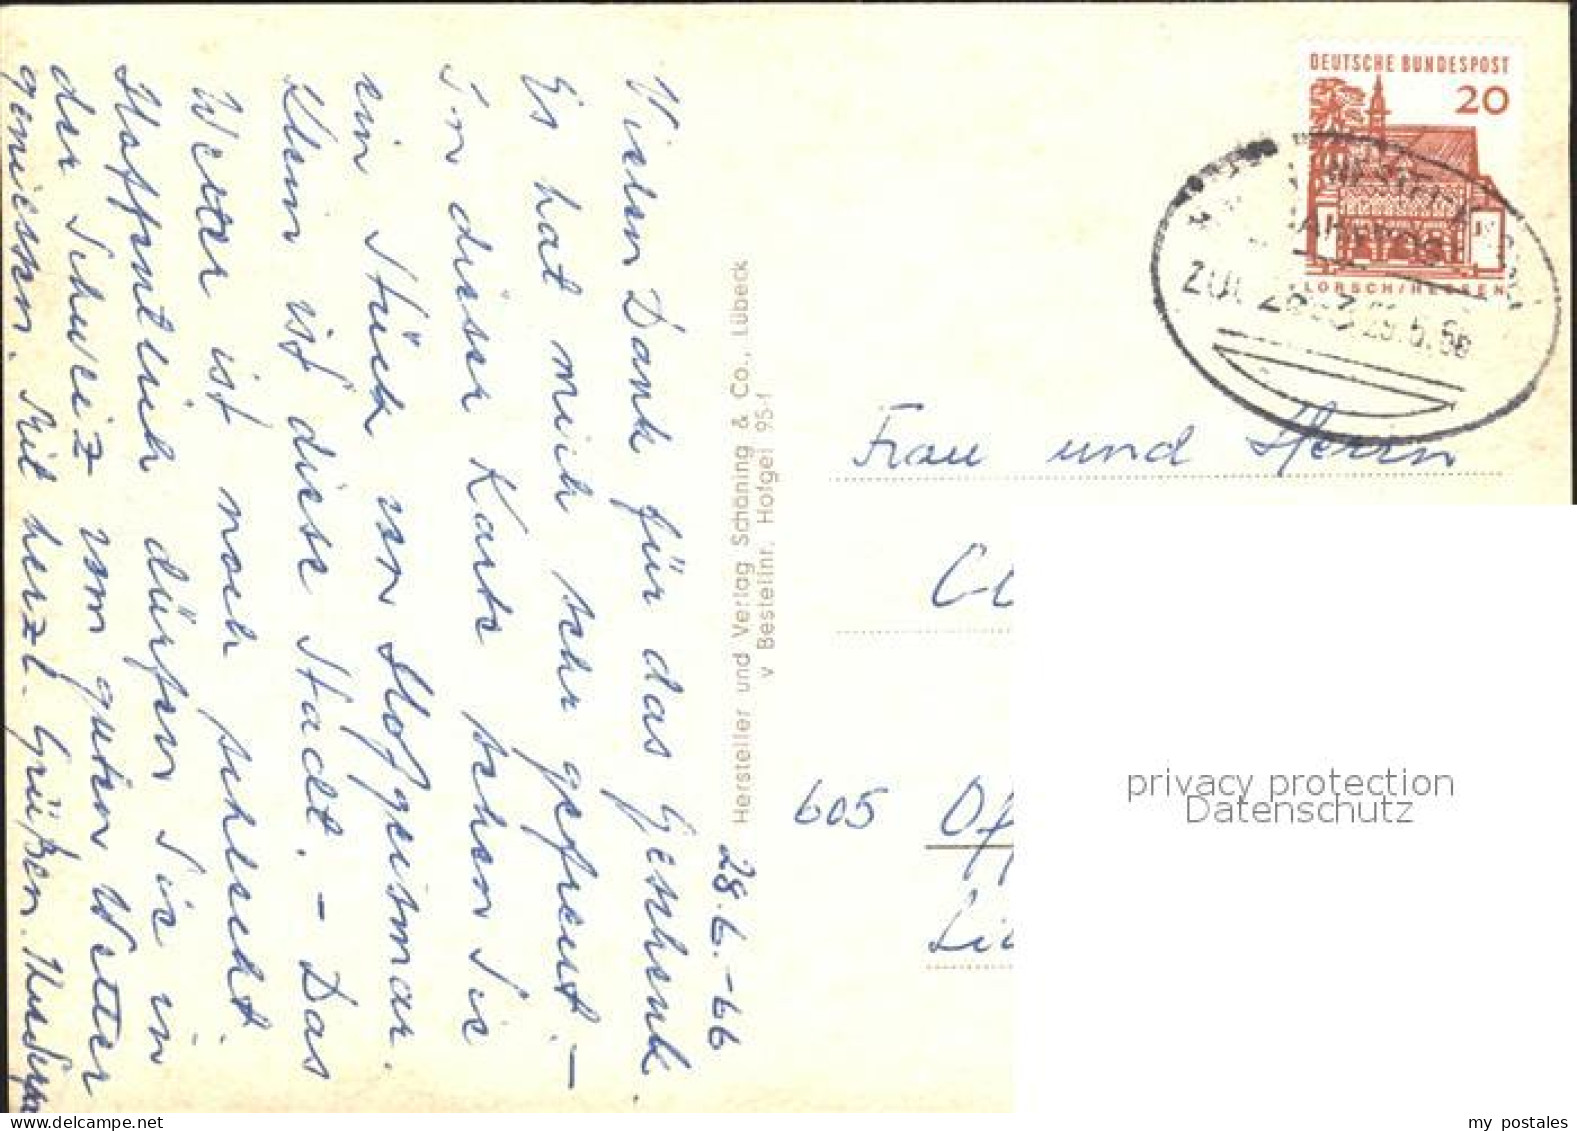 28.6.-66
Vielen Dank für das Geschenk.
Es hat mich sehr gefreut. –
In dieser Karte sehen Sie
ein Stück von Hofgeismar.
Klein ist diese Stadt. – Das
Wetter ist noch schlecht.
Hoffentlich dürfen Sie in
der Schweiz vom guten Wetter
geniessen. Mit herzl. Grüßen.
Hersteller und Verlag Schöning & Co., Lübeck
v Bestellnr. Hofgei 95-1
DEUTSCHE BUNDESPOST
20
LORSCH/HESSEN
BAHNPOST
ZUG
Frau und Herrn
605 Off
privacy protection
Datenschutz
my postales